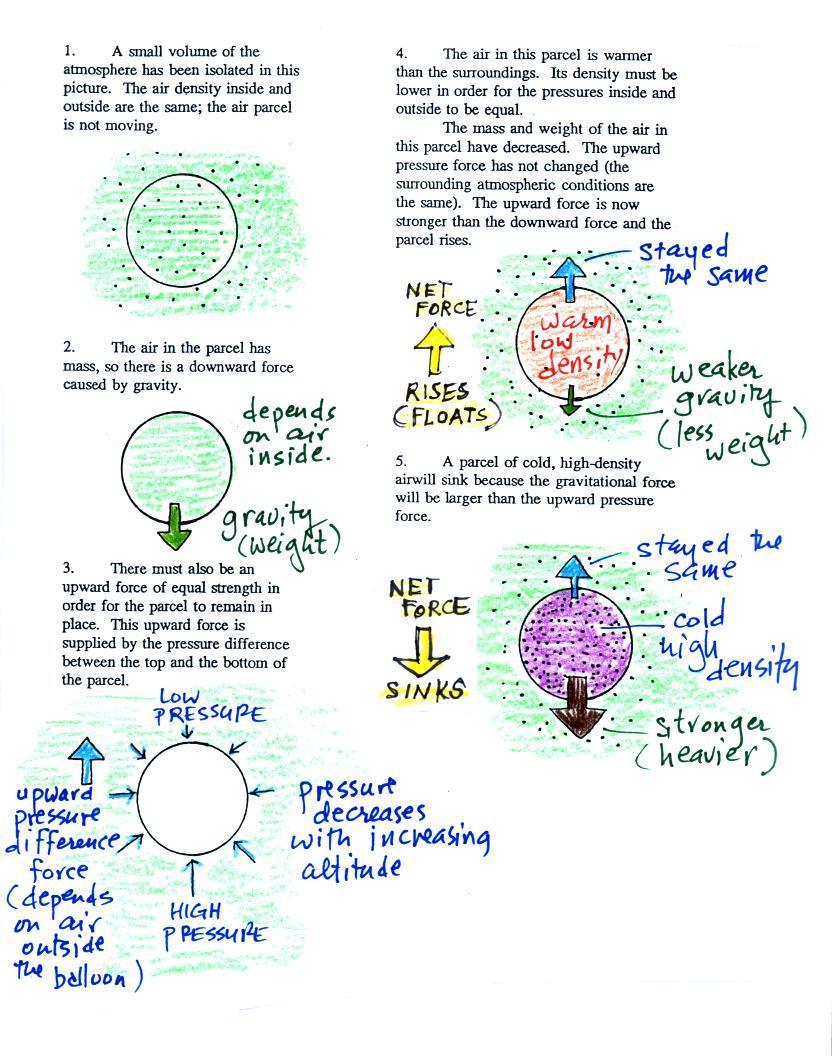 1. A small volume of the
atmosphere has been isolated in this
picture. The air density inside and
outside are the same; the air parcel
is not moving.
2. The air in the parcel has
mass, so there is a downward force
caused by gravity.
depends
on air
inside.
gravity
(weight)
3. There must also be an
upward force of equal strength in
order for the parcel to remain in
place. This upward force is
supplied by the pressure difference
between the top and the bottom of
the parcel.
LOW
PRESSURE
upward
pressure
difference
force
(depends
on air
outside
the balloon)
pressure
decreases
with increasing
altitude
HIGH
PRESSURE
4. The air in this parcel is warmer
than the surroundings. Its density must be
lower in order for the pressures inside and
outside to be equal.
The mass and weight of the air in
this parcel have decreased. The upward
pressure force has not changed (the
surrounding atmospheric conditions are
the same). The upward force is now
stronger than the downward force and the
parcel rises.
stayed
the same
NET
FORCE
RISES
(FLOATS)
warm
low
density
weaker
gravity
(less
weight)
5. A parcel of cold, high-density
airwill sink because the gravitational force
will be larger than the upward pressure
force.
stayed the
same
NET
FORCE
SINKS
cold
high
density
stronger
(heavier)